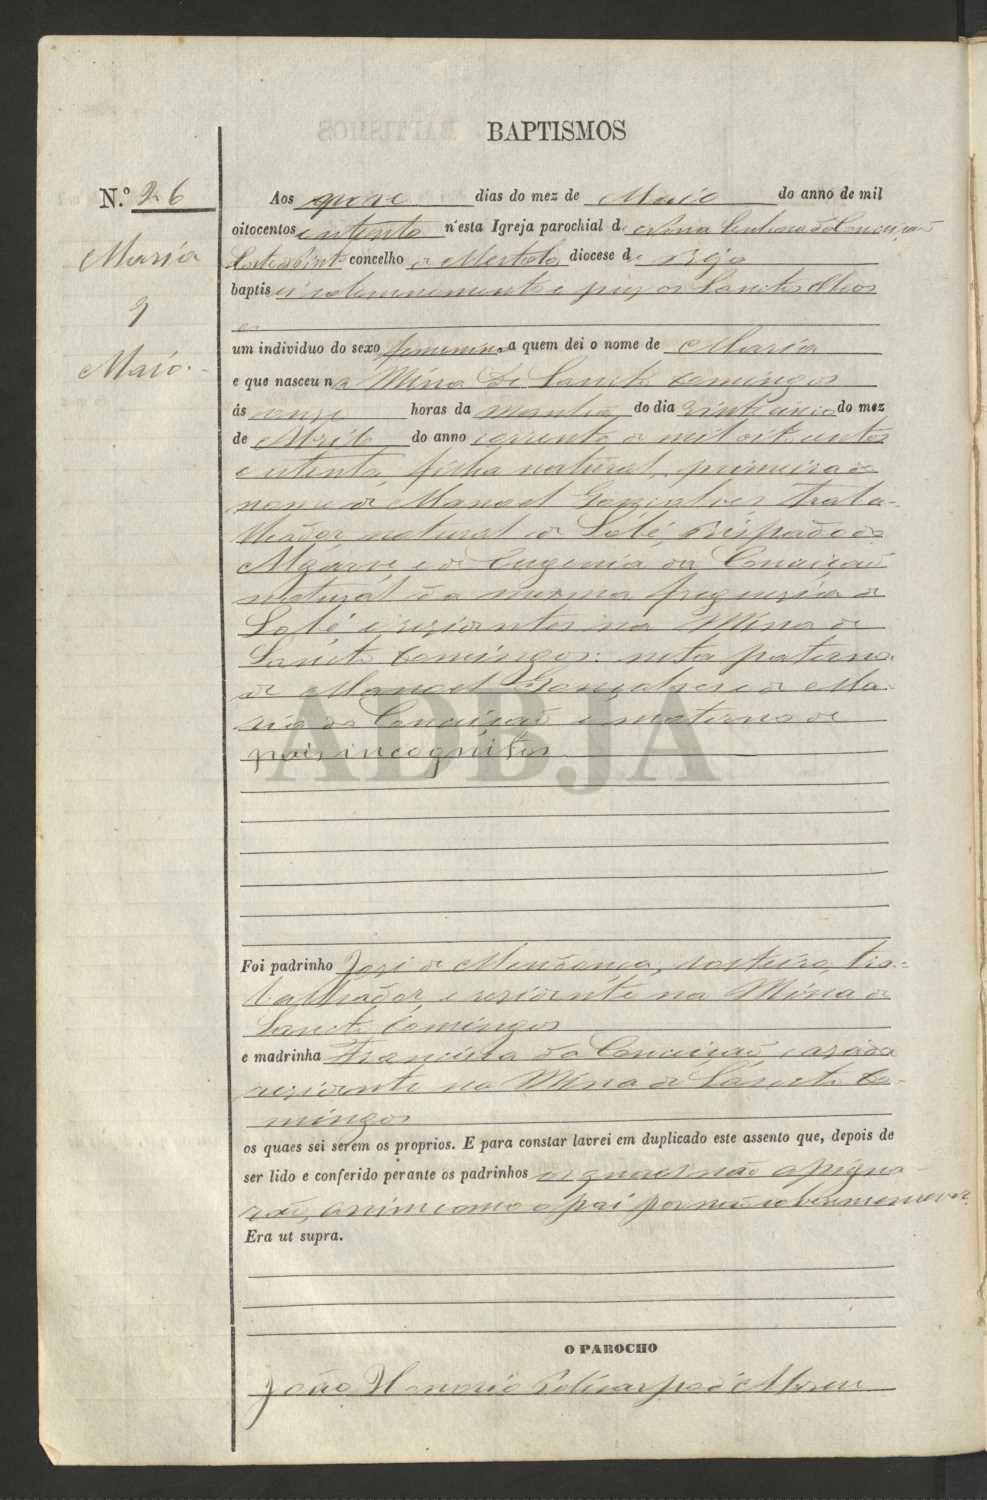 BAPTISMOS
N.º 26
Maria
9
Maio.
Aos nove dias do mez de Maio do anno de mil
oitocentos e oitenta n'esta Igreja parochial de Nossa Senhora da Conceição
concelho de Mertola diocese de Beja
baptisei solemnemente e puz os Sanctos Oleos
um individuo do sexo femenino a quem dei o nome de Maria
e que nasceu na Mina de Sancto Domingos
ás onze horas da manhã do dia vinte cinco do mez
de Abril do anno corrente de mil oitocentos
e oitenta, filha natural, primeira do
nome de Manoel Gonçalves traba-
lhador natural de Lolé, Bispado do
Algarve e de Eugenia da Conceição
natural da mesma freguezia de
Lolé e residentes na Mina de
Sancto Domingos: neta paterna
de Manoel Gonçalves e de Ma-
ria da Conceição e materna de
pais incognitos
Foi padrinho José de Mendonça, solteiro, tra-
balhador e residente na Mina de
Sancto Domingos
e madrinha Francisca da Conceição, casada
residente na Mina de Sancto Do-
mingos
os quaes sei serem os proprios. E para constar lavrei em duplicado este assento que, depois de
ser lido e conferido perante os padrinhos os quaes não assigna-
rão, assim como o pai por não saberem escrever.
Era ut supra.
O PAROCHO
João Honorio Policarpo d'Abreu
ADBJA